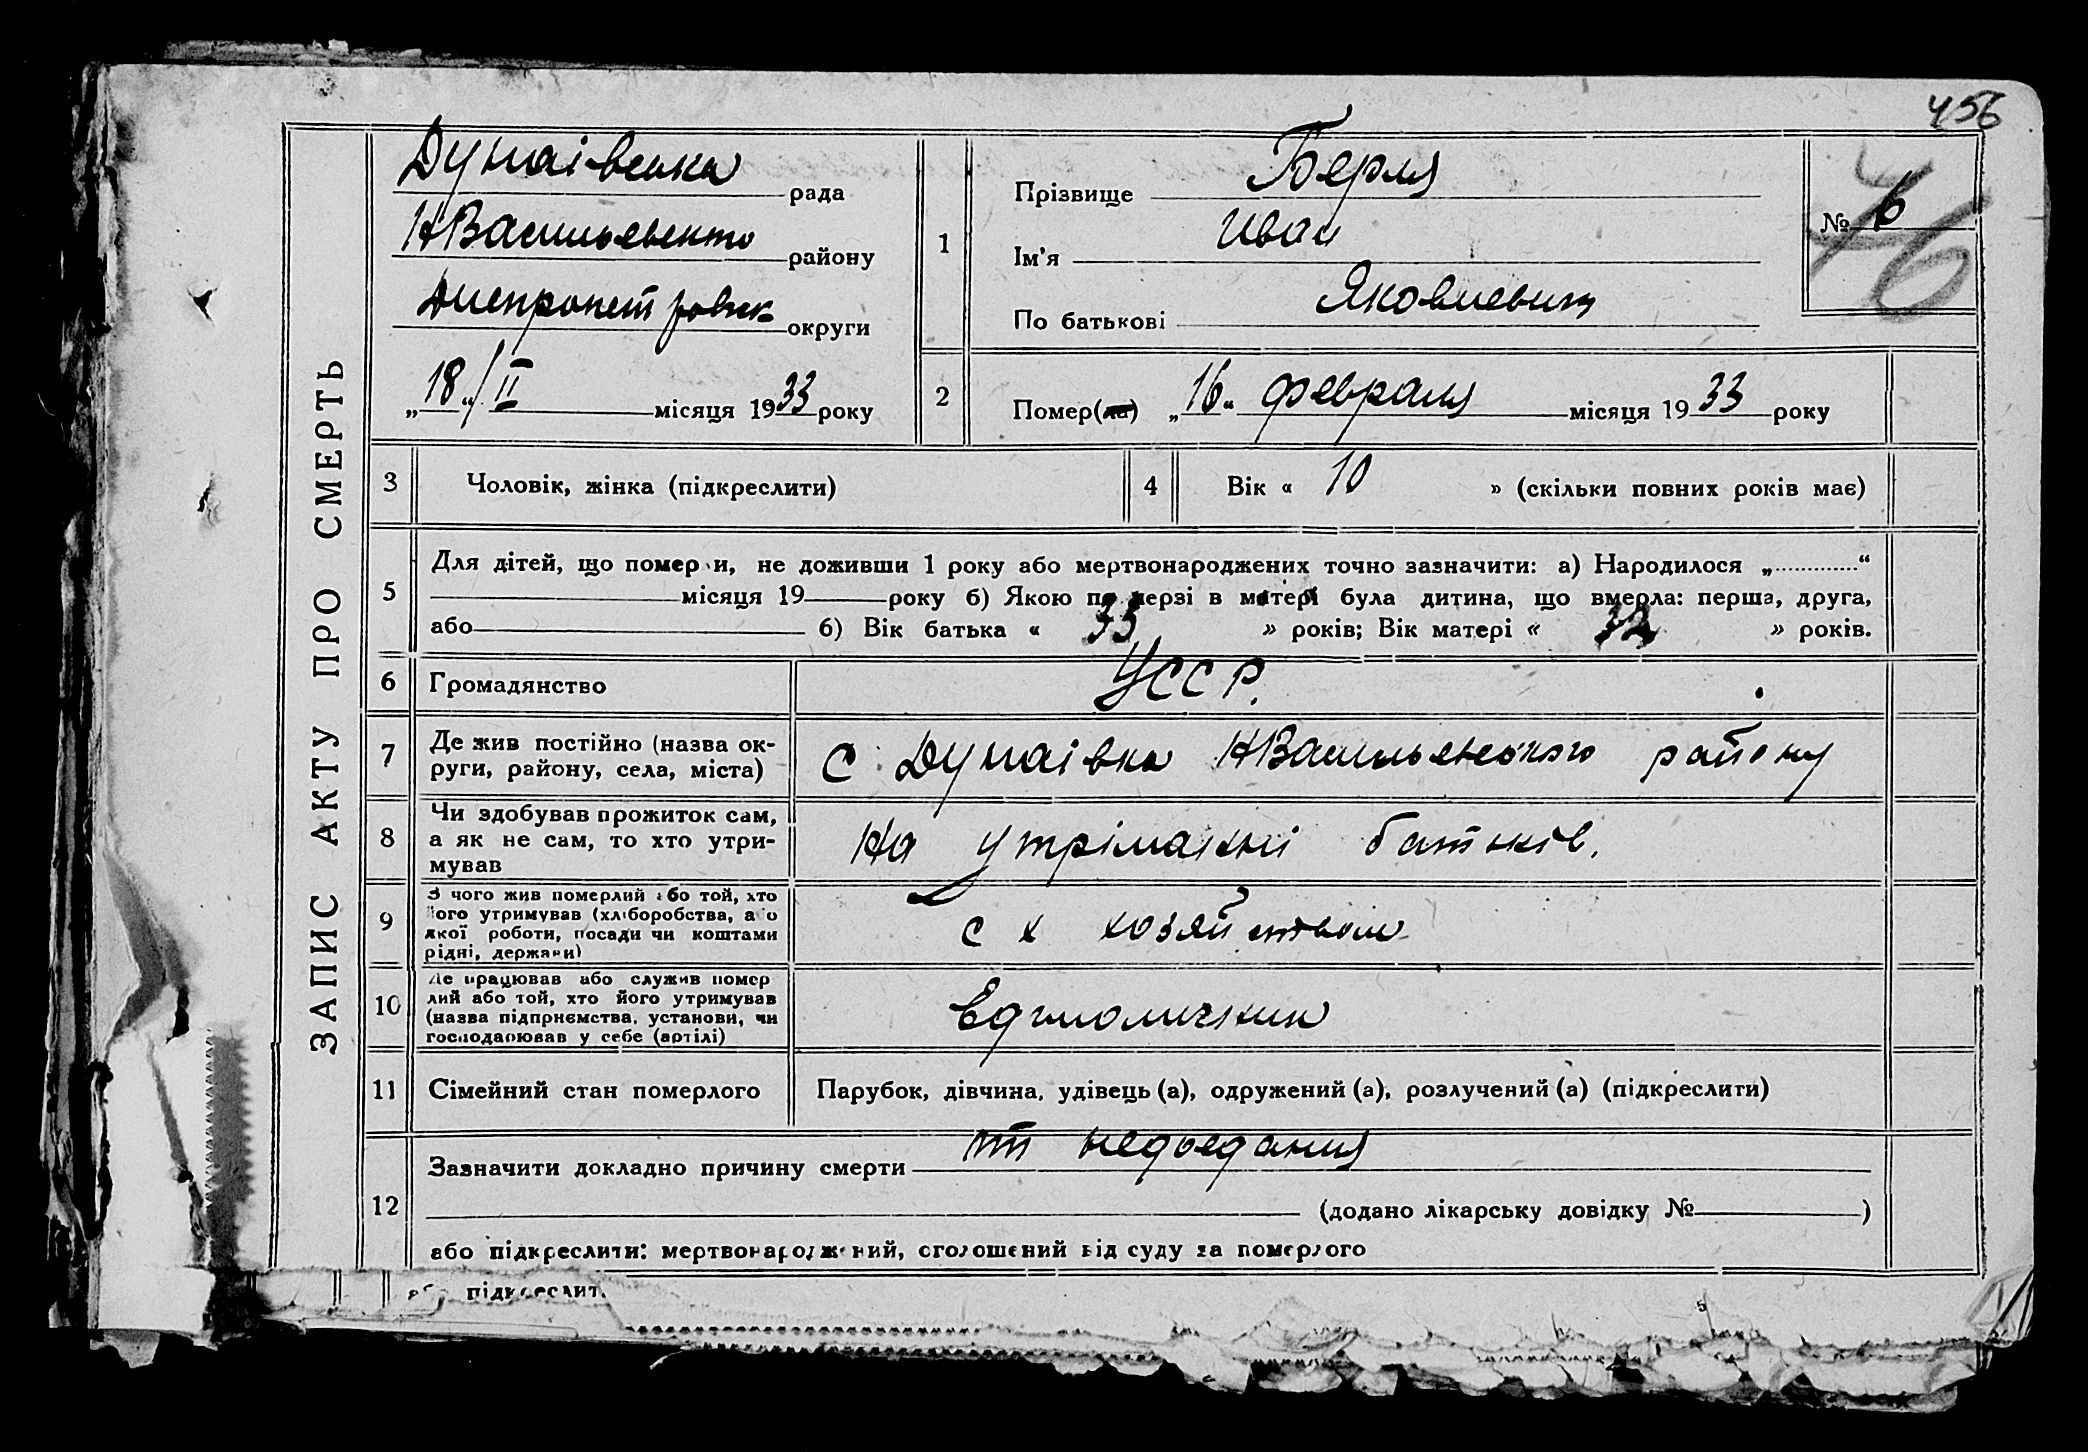 456
ЗАПИС АКТУ ПРО СМЕРТЬ
Дунаівська рада
НВасильевского району
Днепропетровск округи
„18“/II місяця 1933 року
1
Прізвище Берля
Ім'я Иван
По батькові Яковлевич
№ 6
46
2
Помер(ла) „16“ февраля місяця 1933 року
3 Чоловік, жінка (підкреслити)
4 Вік « 10 » (скільки повних років має)
5
Для дітей, що померли, не доживши 1 року або мертвонароджених точно зазначити: а) Народилося „ “
місяця 19 року б) Якою по черзі в матері була дитина, що вмерла: перша, друга,
або б) Вік батька « 33 » років; Вік матері « 32 » років.
6 Громадянство УССР.
7 Де жив постійно (назва ок-
руги, району, села, міста)
С Дунаівка НВасильевського району
8 Чи здобував прожиток сам,
а як не сам, то хто утри-
мував
На утріманні батьків.
9 З чого жив померлий або той, хто
його утримував (хліборобства, або
якої роботи, посади чи коштами
рідні, держави)
с х хозяйством
10 Де працював або служив помер
лий або той, хто його утримував
(назва підприємства, установи, чи
господарював у себе (артілі)
Единоличник
11 Сімейний стан померлого Парубок, дівчина, удівець (а), одружений (а), розлучений (а) (підкреслити)
12
Зазначити докладно причину смерти от недоедания
(додано лікарську довідку № )
або підкреслити: мертвонароджений, оголошений від суду за померлого
або підкреслит